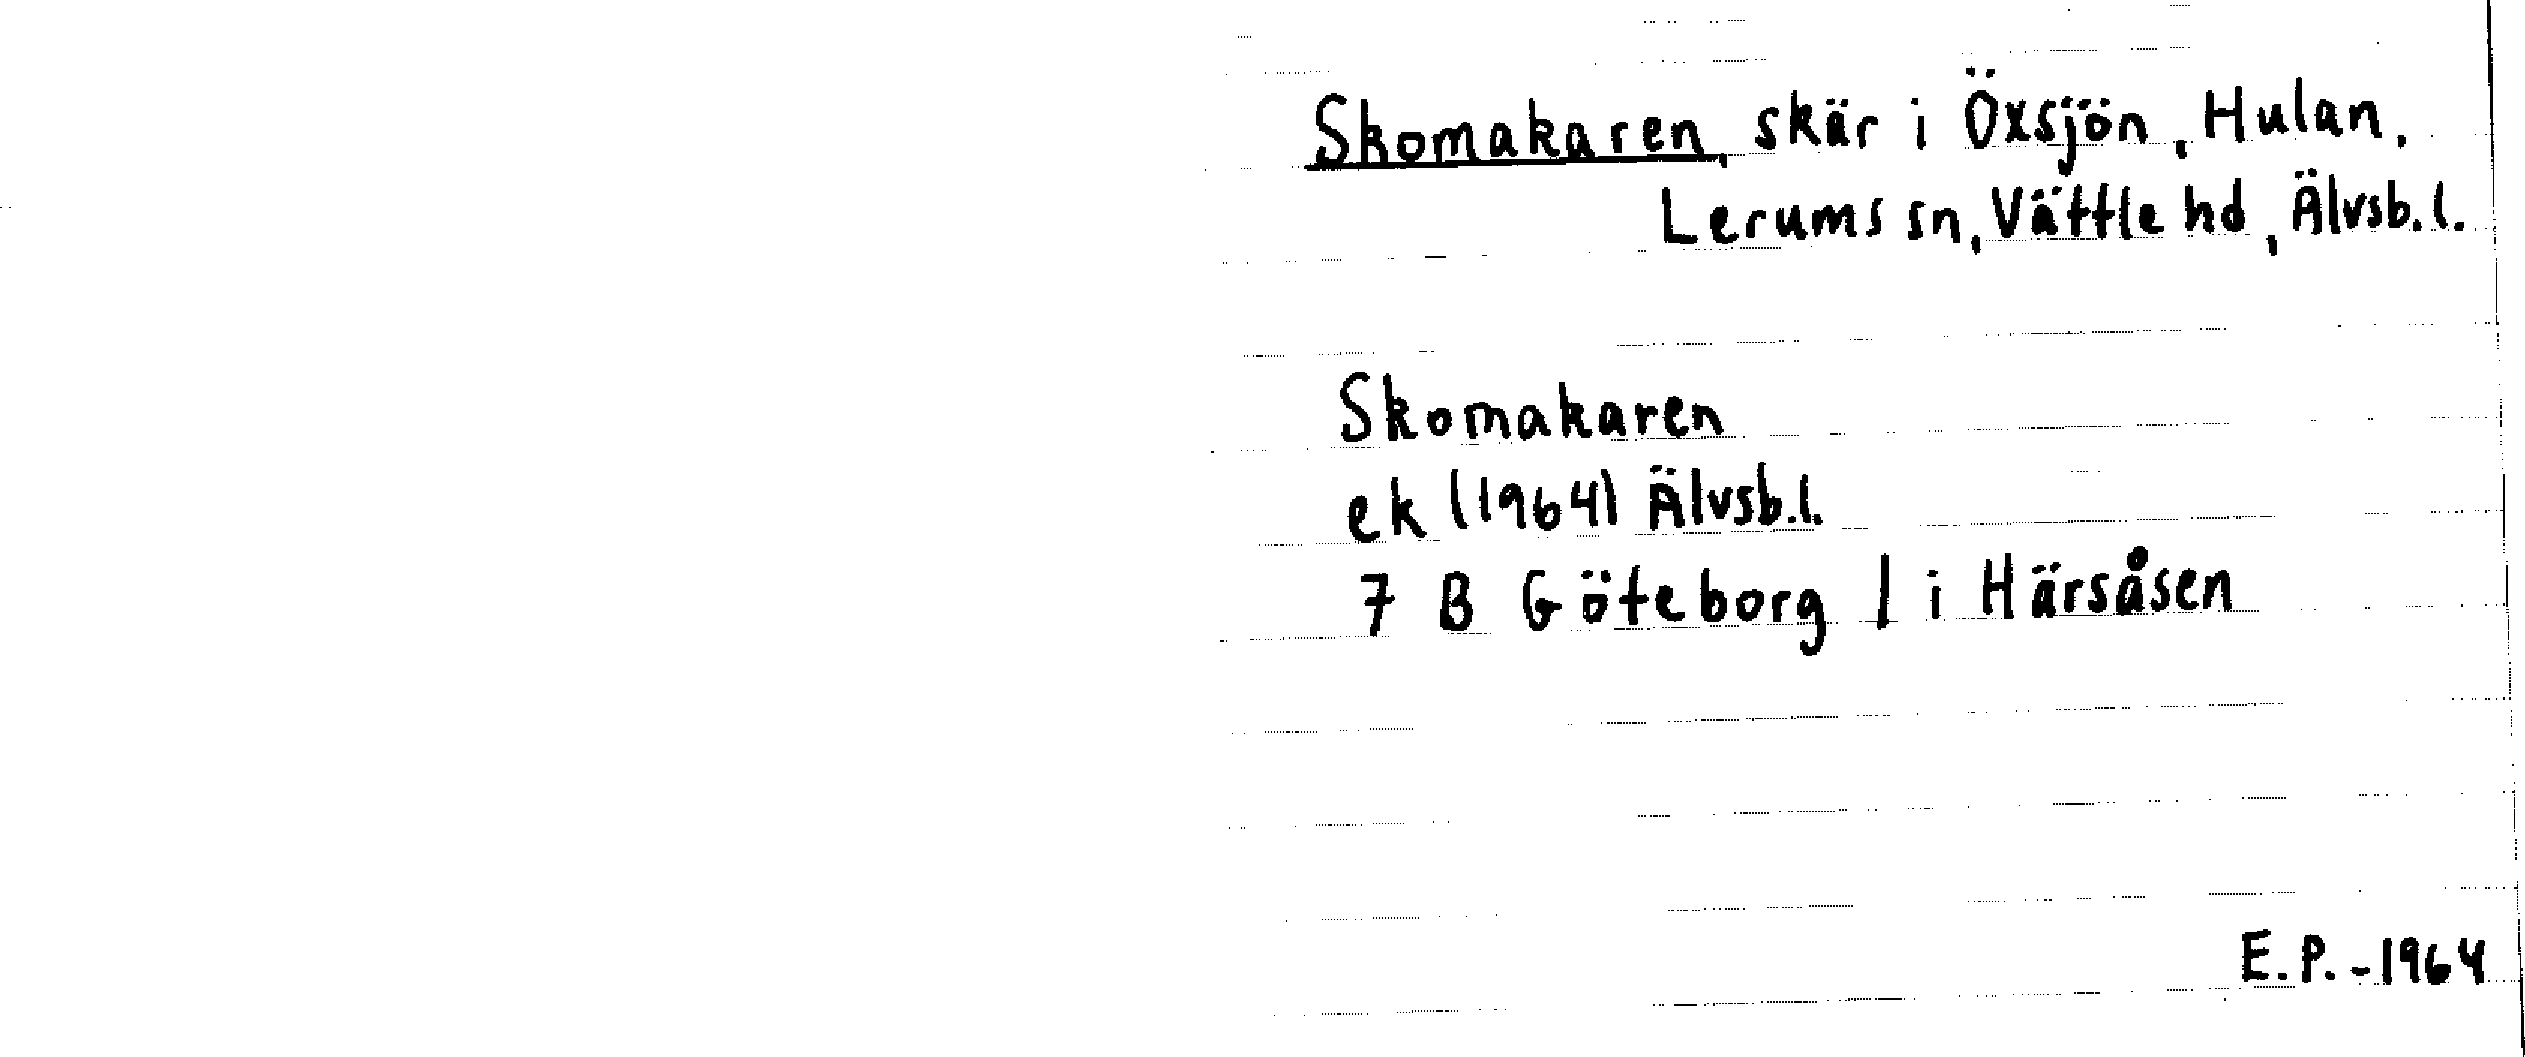 Skomakaren, skär i Öxsjön, Hulan,
Lerums sn, Vättle hd, Älvsb. l.
Skomakaren
ek (1964) Älvsb. l.
7 B Göteborg 1 i Härsåsen
E. P. - 1964